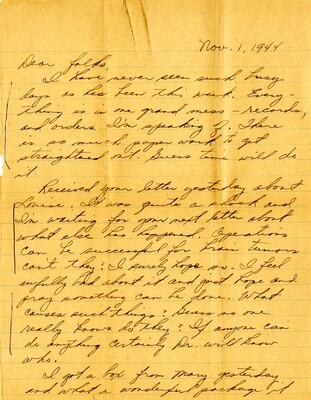 Nov. 1, 1944
Dear folks,
I have never seen such busy
days as has been this week. Every
thing is in one grand mess - records,
and orders I'm speaking of. There
is so much paper work to get
straightened out. Guess time will do
it.
Received your letter yesterday about
Louise. It was quite a shock and
I'm waiting for your next letter about
what else has happened. Operations
can be successful for brain tumors
can't they? I surely hope so. I feel
awfully bad about it and just hope and
pray something can be done. What
causes such things? Guess no one
really knows do they? If anyone can
do anything certainly Dr. will know
who.
I got a box from Mary yesterday
and what a wonderful package it